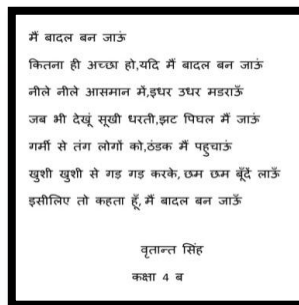 मैं बादल बन जाऊं
कितना ही अच्छा हो,यदि मैं बादल बन जाऊं
नीले नीले आसमान में,इधर उधर मडराऊँ
जब भी देखूं सूखी धरती,झट पिघल मैं जाऊं
गर्मी से तंग लोगों को,ठंडक मैं पहुचाऊं
खुशी खुशी से गड़ गड़ करके, छम छम बूँदें लाऊँ
इसीलिए तो कहता हूँ, मैं बादल बन जाऊँ
वृतान्त सिंह
कक्षा 4 ब